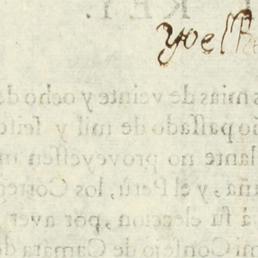 yo el Re
mias de veinte y ocho de
paſſado de mil y ſeiſ
lante no proveyeſſen
y el Perù, los Correg
ſu eleccion, por aver
Conſejo de Camara de